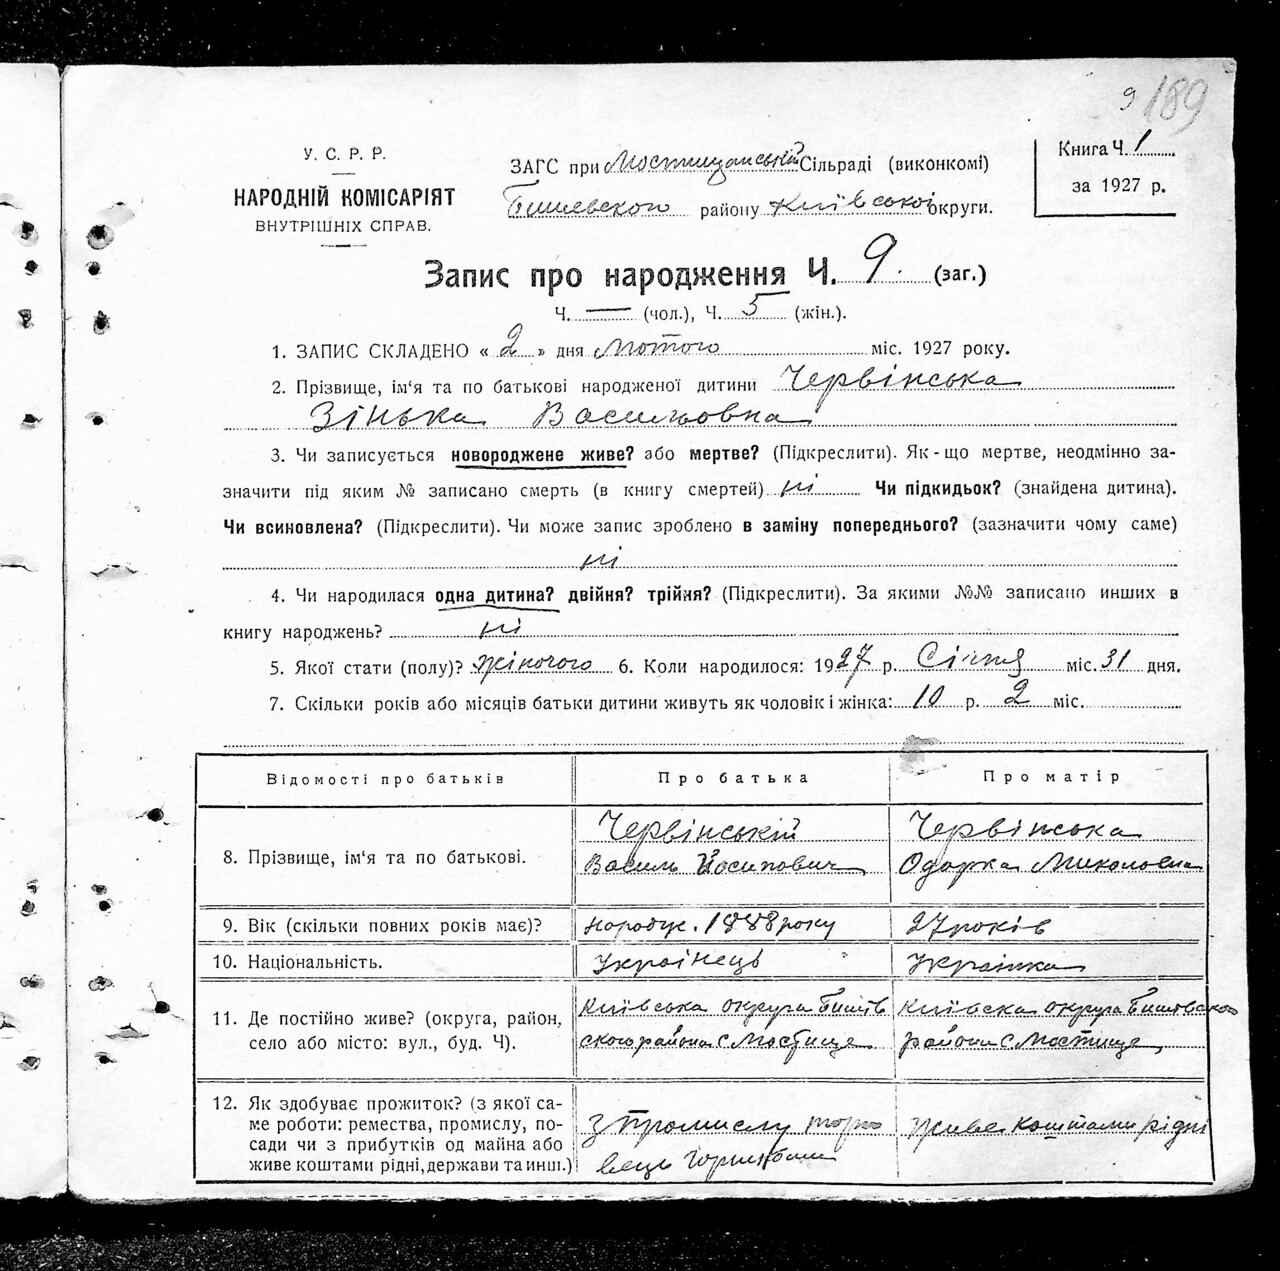 9 189
У. С. Р. Р.
НАРОДНІЙ КОМІСАРІЯТ
ВНУТРІШНІХ СПРАВ.
ЗАГС при Мостищанській Сільраді (виконкомі)
Бишевского району Київської округи.
Книга Ч. 1
за 1927 р.
Запис про народження Ч. 9. (заг.)
Ч. — (чол.), Ч. 5 (жін.).
1. ЗАПИС СКЛАДЕНО « 2 » дня Лютого міс. 1927 року.
2. Прізвище, ім'я та по батькові народженої дитини Червінська
Зінька Васильовна
3. Чи записується новороджене живе? або мертве? (Підкреслити). Як-що мертве, неодмінно за-
значити під яким № записано смерть (в книгу смертей) ні Чи підкидьок? (знайдена дитина).
Чи всиновлена? (Підкреслити). Чи може запис зроблено в заміну попереднього? (зазначити чому саме)
ні
4. Чи народилася одна дитина? двійня? трійня? (Підкреслити). За якими №№ записано инших в
книгу народжень? ні
5. Якої стати (полу)? жіночого 6. Коли народилося: 1927 р. Січня міс. 31 дня.
7. Скільки років або місяців батьки дитини живуть як чоловік і жінка: 10 р. 2 міс.
Відомості про батьків Про батька Про матір
8. Прізвище, ім'я та по батькові. Червінській Червінська
Василь Йосипович Одарка Миколовна
9. Вік (скільки повних років має)? народж. 1888 року 27 років
10. Національність. Українець Українка
11. Де постійно живе? (округа, район, Київська округа Бишів Київска округа Бишовского
село або місто: вул., буд. Ч). ского района с Мостище района с Мостище
12. Як здобуває прожиток? (з якої са-
ме роботи: ремества, промислу, по- з промислу живе коштами рідні
сади чи з прибутків од майна або
живе коштами рідні, держави та инш.)